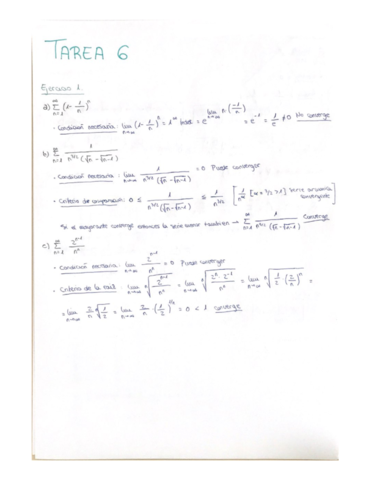 TAREA 6
Ejercicio 1.
a) ∑_{n=1}^{∞} (1 - 1/n)^n
· Condición necesaria: lim_{n→∞} (1 - 1/n)^n = 1^∞ = e^{lim_{n→∞} n(-1/n)} = e^{-1} = 1/e ≠ 0 No converge
b) ∑_{n=1}^{∞} 1/(n^{3/2} (√n - √n-1))
· Condición necesaria: lim_{n→∞} 1/(n^{3/2} (√n - √n-1)) = 0 Puede converger
· Criterio de comparación: 0 ≤ 1/(n^{3/2} (√n - √n-1)) ≤ 1/n^{3/2} [1/n^α [α = 3/2 > 1] serie armónica convergente]
*Si el mayorante converge entonces la serie menor también → ∑_{n=1}^{∞} 1/(n^{3/2} (√n - √n-1)) Converge
c) ∑_{n=1}^{∞} 2^{n-1}/n^n
· Condición necesaria: lim_{n→∞} 2^{n-1}/n^n = 0 Puede converger
· Criterio de la raíz: lim_{n→∞} ⁿ√(2^{n-1}/n^n) = lim_{n→∞} ⁿ√(2^n · 2^{-1}/n^n) = lim_{n→∞} ⁿ√(1/2 (2/n)^n) =
= lim_{n→∞} 2/n ⁿ√(1/2) = lim_{n→∞} 2/n (1/2)^{1/n} = 0 < 1 converge